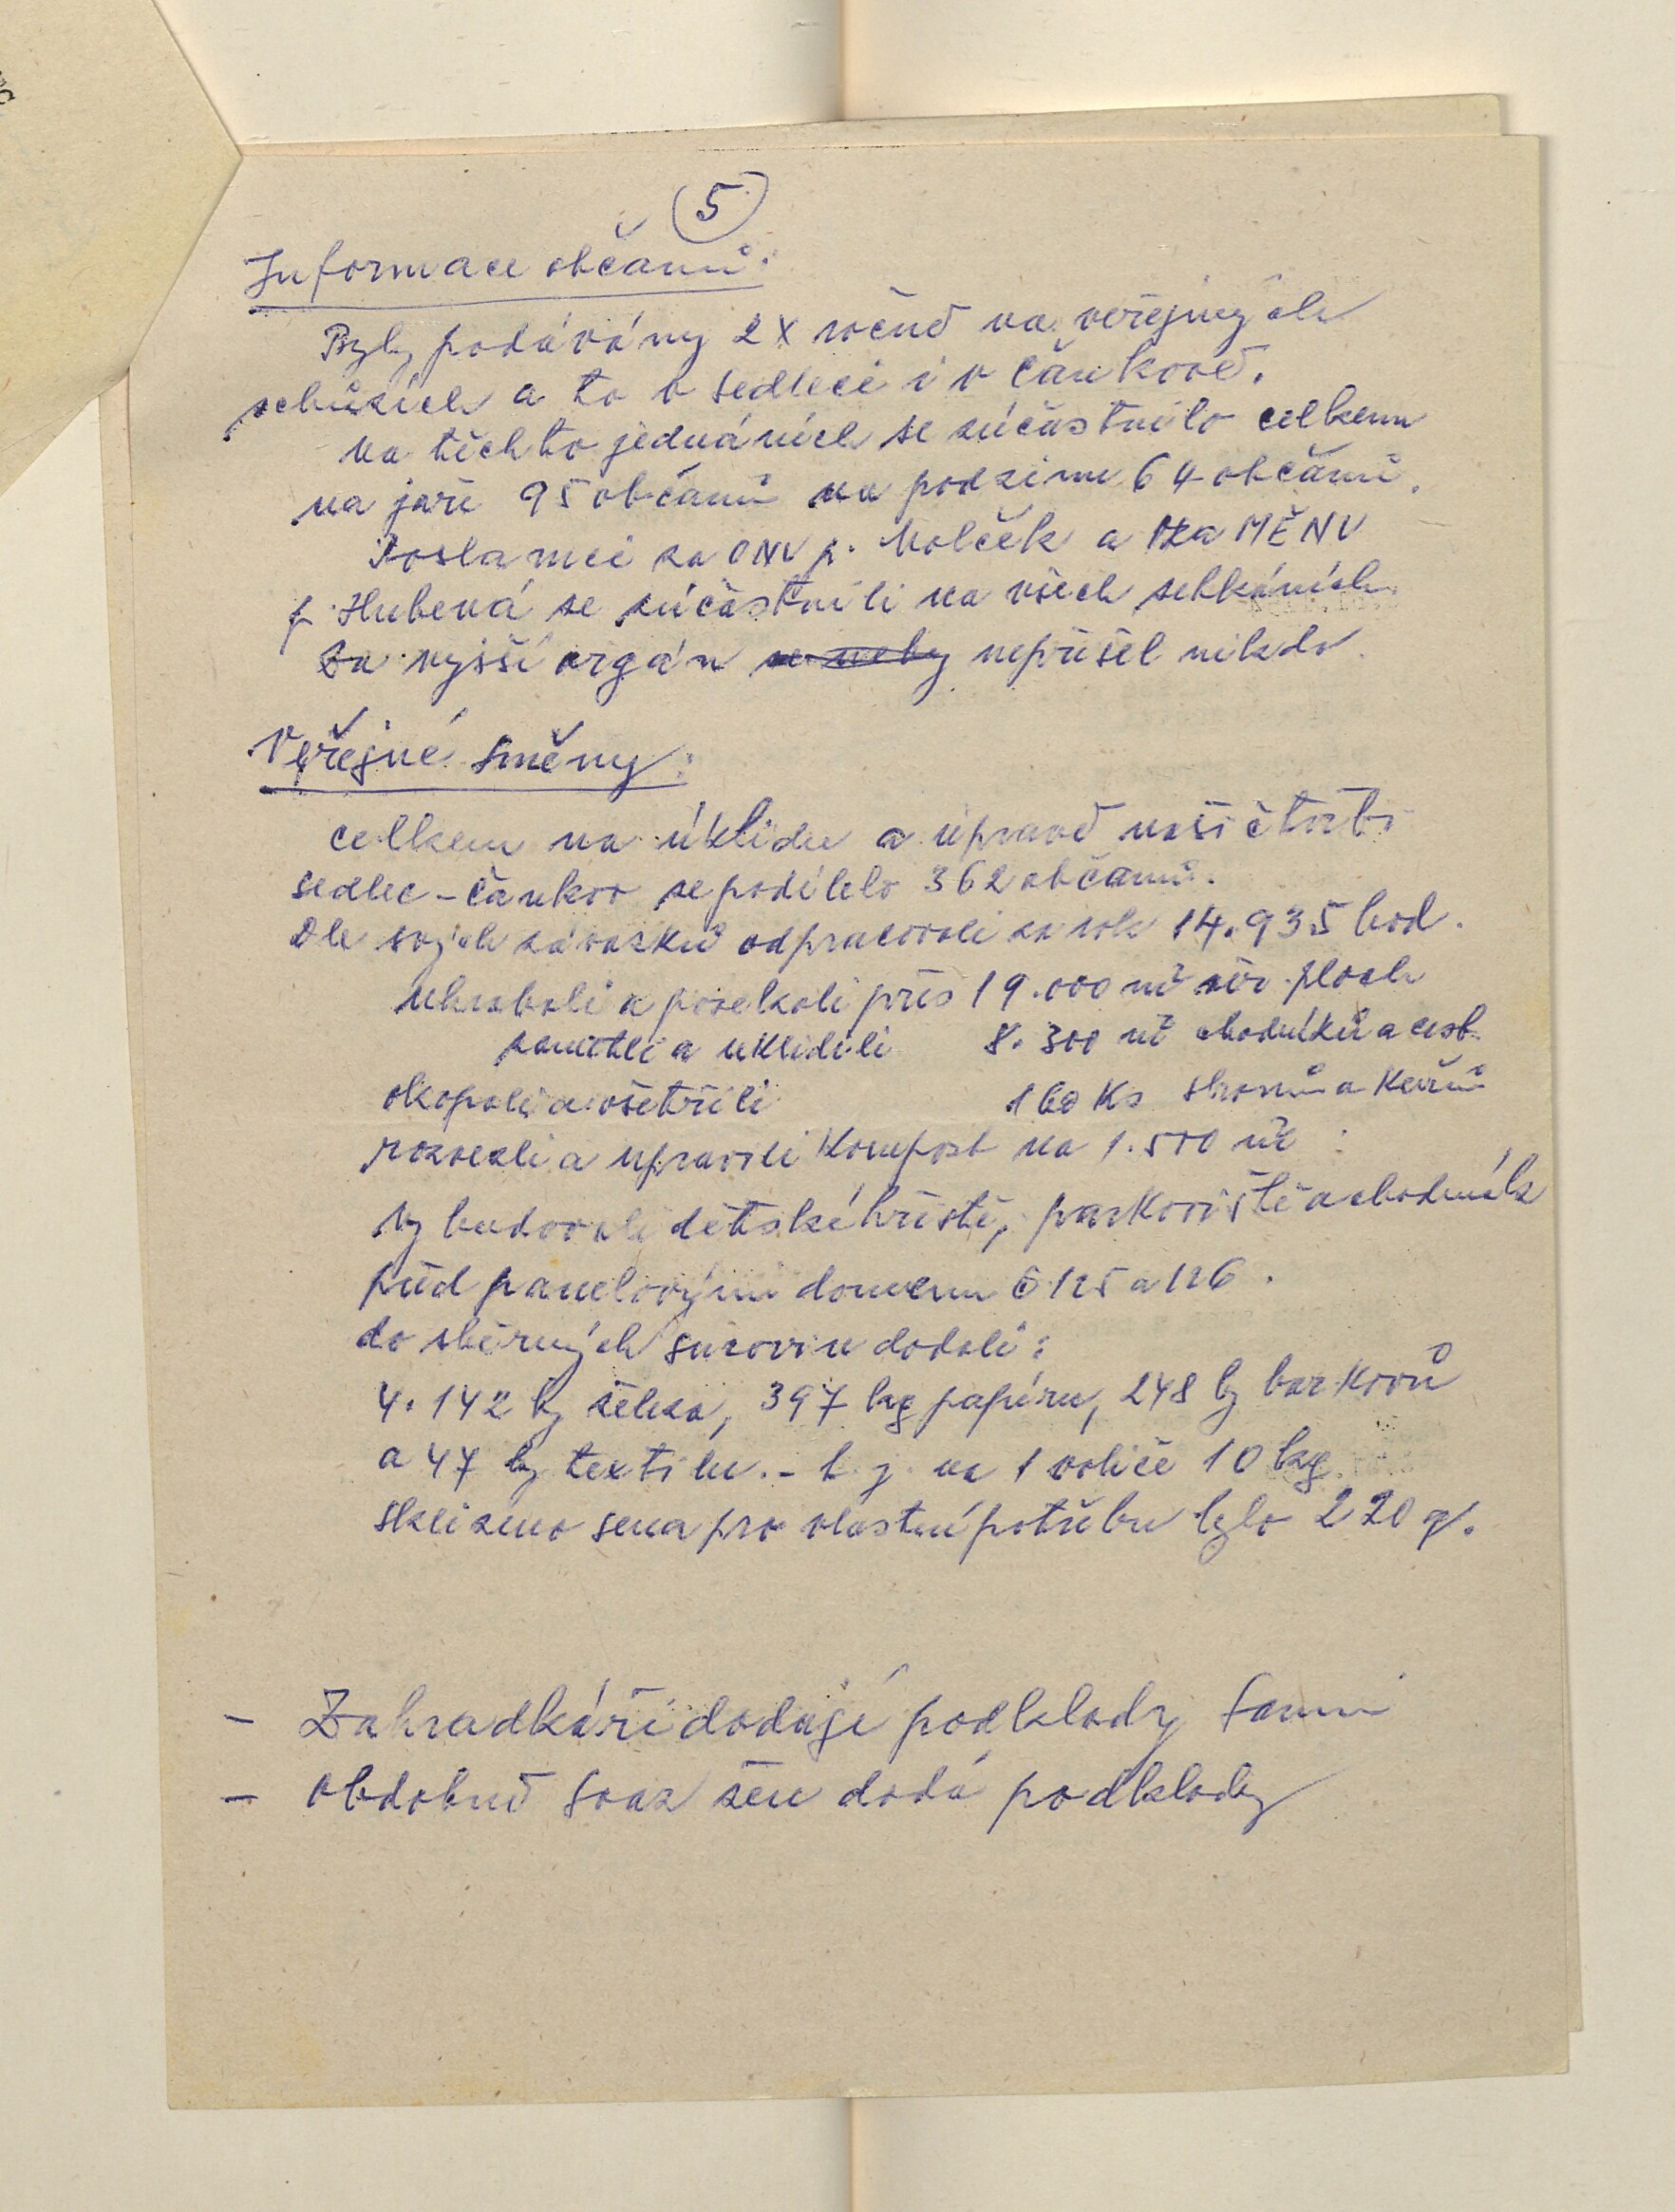 5
Informace občanů:
Byly podávány 2x ročně na veřejných
schůzích a to v Sedleci i v Čankově.
Na těchto jednáních se zúčastnilo celkem
na jaře 95 občanů na podzim 64 občanů.
Poslanci za ONV p. Molček a za MěNV
p. Hubená se zúčastnili na všech setkáních
Za vyšší orgán nepřišel nikdo.
Veřejné směny:
celkem na úklidu a úpravě naší čtvrti
Sedlec - Čankov se podílelo 362 občanů.
Dle svých závazků odpracovali za rok 14.935 hod.
uhrabali a posekali přes 19.000 m² ploch
zametli a uklidili 8.300 m² chodníků a cest
okopali a ošetřili 160 ks stromů a keřů
rozvezli a upravili kompost na 1.500 m²
vybudovali dětské hřiště, parkoviště a chodník
před panelovými domem č 125 a 126.
do sběrných surovin dodali:
4.142 kg železa, 397 kg papíru, 248 kg bar. kovů
a 47 kg textilu. - t. j. na 1 voliče 10 kg
sklizeno sena pro vlastní potřebu bylo 220 q.
- Zahradkáři dodají podklady sami
- obdobně svaz žen dodá podklady